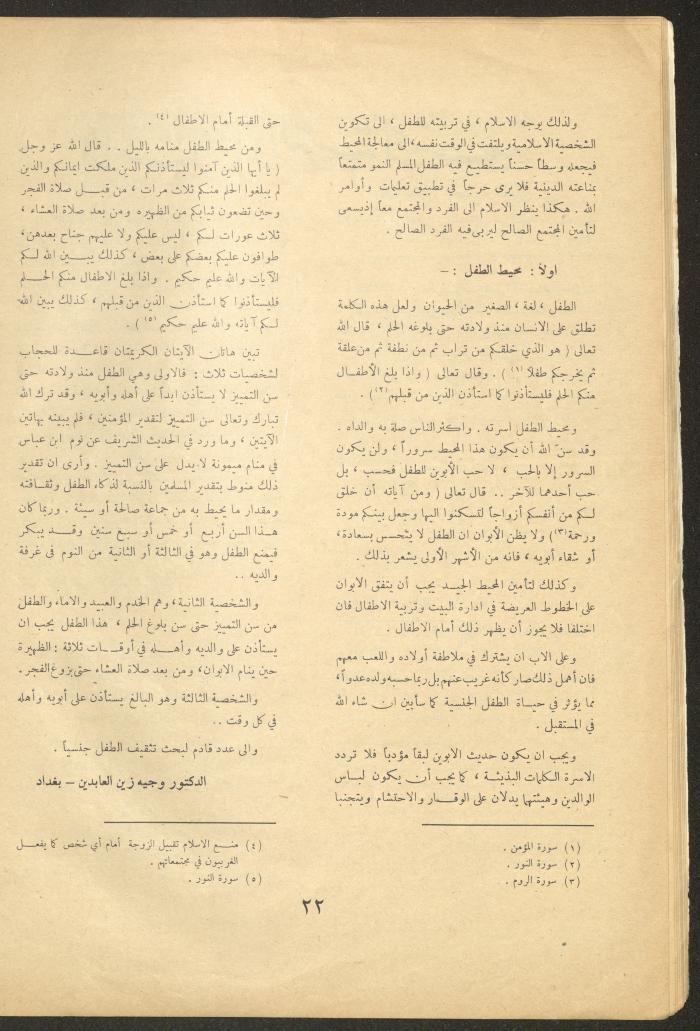 ولذلك يوجه الاسلام ، في تربيته للطفل ، الى تكوين
الشخصية الاسلامية ويلتفت في الوقت نفسه ، الى معالجة المحيط
فيجعله وسطاً حسناً يستطيع فيه الطفل المسلم النمو متمتعاً
بمناعته الدينية فلا يرى حرجاً في تطبيق تعليمات وأوامر
الله . هكذا ينظر الاسلام الى الفرد والمجتمع معاً إذ يسعى
لتأمين المجتمع الصالح ليربى فيه الفرد الصالح .
اولاً : محيط الطفل : –
الطفل ، لغة ، الصغير من الحيوان ولعل هذه الكلمة
تطلق على الانسان منذ ولادته حتى بلوغه الحلم ، قال الله
تعالى ( هو الذي خلقكم من تراب ثم من نطفة ثم من علقة
ثم يخرجكم طفلاً (١) ) . وقال تعالى ( واذا بلغ الأطفال
منكم الحلم فليستأذنوا كما استأذن الذين من قبلهم (٢) ) .
ومحيط الطفل أسرته . واكثر الناس صلة به والداه .
وقد سنّ الله أن يكون هذا المحيط سروراً ، ولن يكون
السرور إلا بالحب ، لا حب الأبوين للطفل فحسب ، بل
حب أحدهما للآخر .. قال تعالى ( ومن آياته أن خلق
لكم من أنفسكم أزواجاً لتسكنوا اليها وجعل بينكم مودة
ورحمة (٣) ) ولا يظن الأبوان ان الطفل لا يتحسس بسعادة ،
أو شقاء أبويه ، فانه من الأشهر الأولى يشعر بذلك .
وكذلك لتأمين المحيط الجيد يجب أن يتفق الابوان
على الخطوط العريضة في ادارة البيت وتربية الاطفال فان
اختلفا فلا يجوز أن يظهر ذلك أمام الاطفال .
وعلى الاب ان يشترك في ملاطفة أولاده واللعب معهم
فان أهمل ذلك صار كأنه غريب عنهم بل ربما حسبه ولده عدواً ،
مما يؤثر في حياة الطفل الجنسية كما سأبين ان شاء الله
في المستقبل .
ويجب ان يكون حديث الابوين لبقاً مؤدباً فلا تردد
الاسرة الكلمات البذيئة ، كما يجب أن يكون لباس
الوالدين وهيئتهما يدلان على الوقار والاحتشام ويتجنبا
(١) سورة المؤمن .
(٢) سورة النور .
(٣) سورة الروم .
حتى القبلة أمام الاطفال (٤) .
ومن محيط الطفل منامه بالليل .. قال الله عز وجل
( يا أيها الذين آمنوا ليستأذنكم الذين ملكت ايمانكم والذين
لم يبلغوا الحلم منكم ثلاث مرات ، من قبل صلاة الفجر
وحين تضعون ثيابكم من الظهيرة ومن بعد صلاة العشاء ،
ثلاث عورات لكم ، ليس عليكم ولا عليهم جناح بعدهن ،
طوافون عليكم بعضكم على بعض ، كذلك يبين الله لكم
الآيات والله عليم حكيم . واذا بلغ الاطفال منكم الحلم
فليستأذنوا كما استأذن الذين من قبلهم ، كذلك يبين الله
لكم آياته والله عليم حكيم (٥) ) .
تبين هاتان الآيتان الكريمتان قاعدة للحجاب
لشخصيات ثلاث : فالاولى وهي الطفل منذ ولادته حتى
سن التمييز لا يستأذن ابداً على أهله وأبويه ، وقد ترك الله
تبارك وتعالى سن التمييز لتقدير المؤمنين ، فلم يبينه بهاتين
الآيتين ، وما ورد في الحديث الشريف عن نوم ابن عباس
في منام ميمونة لا يدل على سن التمييز . وأرى ان تقدير
ذلك منوط بتقدير المسلمين بالنسبة لذكاء الطفل وثقافته
ومقدار ما يحيط به من جماعة صالحة أو سيئة . وربما كان
هذا السن أربع أو خمس أو سبع سنين وقد يبكر
فيمنع الطفل وهو في الثالثة أو الثانية من النوم في غرفة
والديه ..
والشخصية الثانية ، وهم الخدم والعبيد والاماء والطفل
من سن التمييز حتى سن بلوغ الحلم ، هذا الطفل يجب ان
يستأذن على والديه وأهله في أوقات ثلاثة : الظهيرة
حين ينام الابوان ، ومن بعد صلاة العشاء حتى بزوغ الفجر .
والشخصية الثالثة وهو البالغ يستأذن على أبويه وأهله
في كل وقت ..
والى عدد قادم لبحث تثقيف الطفل جنسياً .
الدكتور وجيه زين العابدين – بغداد
(٤) منع الاسلام تقبيل الزوجة أمام أي شخص كما يفعل
الغربيون في مجتمعاتهم .
(٥) سورة النور .
٢٢